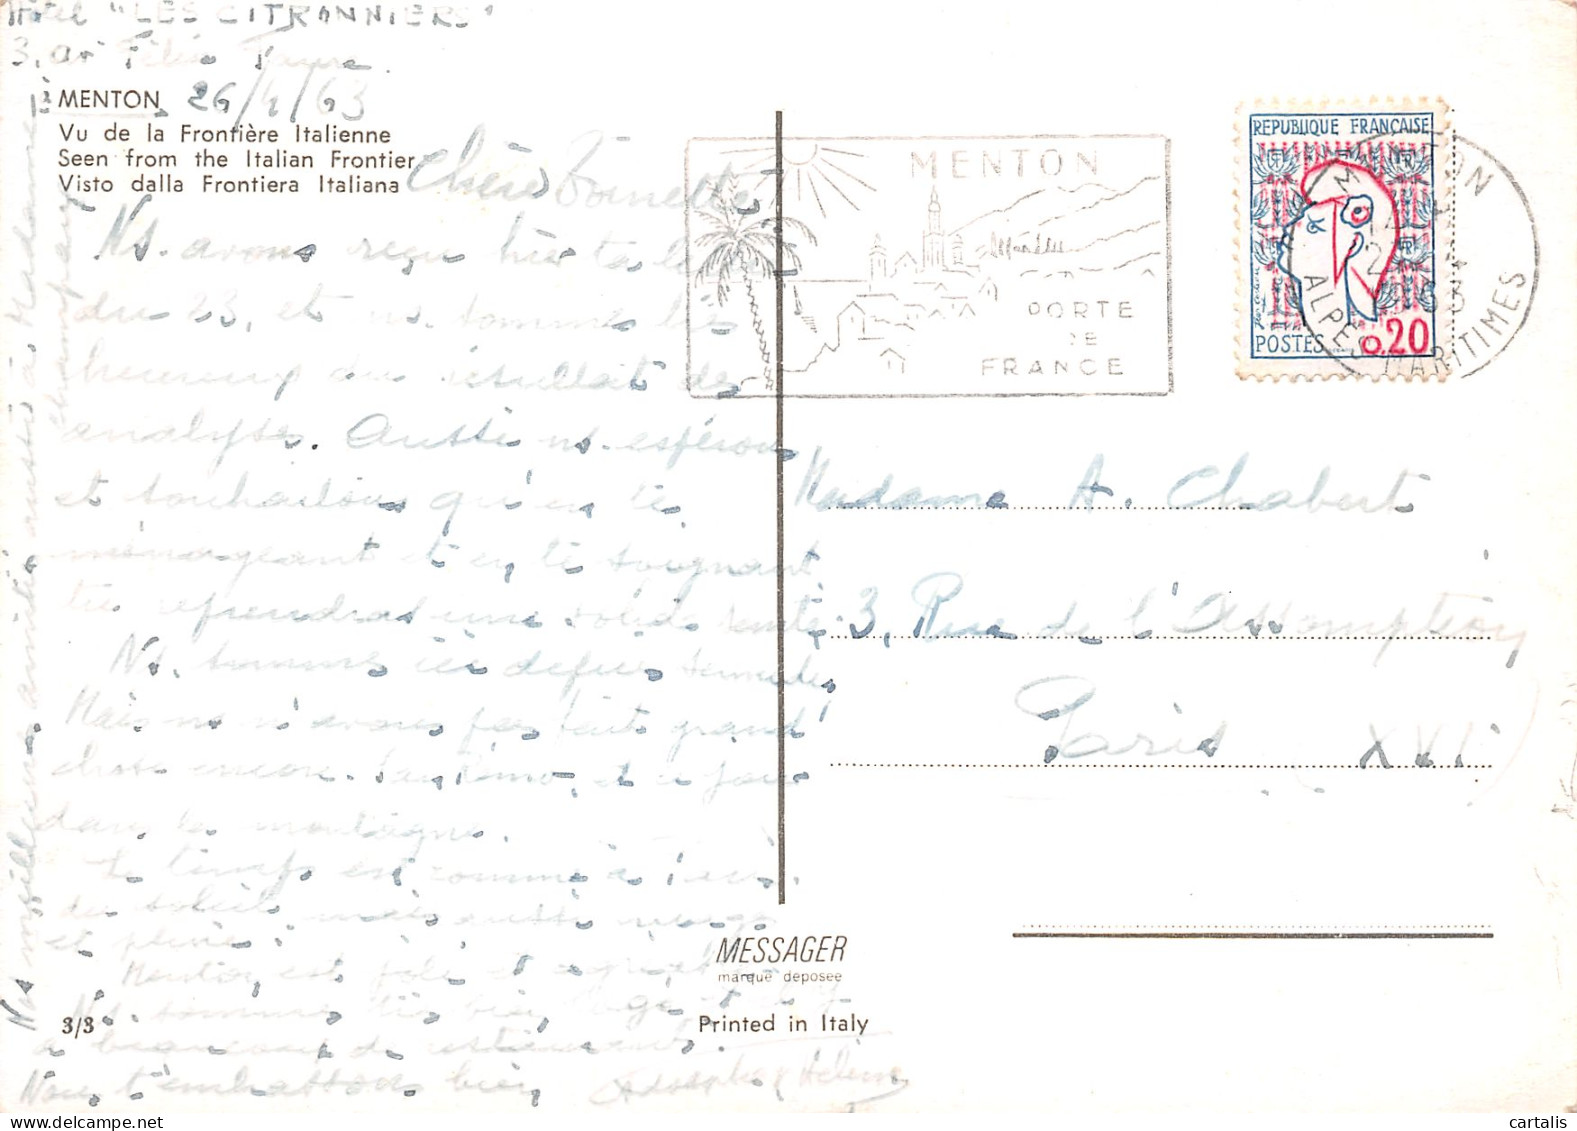 Hôtel "LES CITRONNIERS"
3, av Félix Faure
à MENTON 26/4/63
Vu de la Frontière Italienne
Seen from the Italian Frontier
Visto dalla Frontiera Italiana
Chère Toinette
Ns. avons reçu hier ta
du 23, et ns. sommes
heureux du résultat des
analyses. Aussi ns. espérons
et souhaitons qu'en te
ménageant et en te soignant
tu reprendras une solide santé.
Ns. sommes ici depuis
Mais ns n'avons pas fait grand
chose encore. San Remo, et
dans la montagne.
Le temps est comme à
du soleil, mais aussi nuages
et pluie.
Menton est
Ns. sommes très bien
a beaucoup de
Nous t'embrassons bien
Nos meilleures amitiés aussi à Madame
Champeaux
3/3
MESSAGER
marque déposée
Printed in Italy
MENTON
PORTE
DE
FRANCE
REPUBLIQUE FRANÇAISE
POSTES 0,20
MENTON
ALPES MARITIMES
Madame A. Chabert
3, Rue de l'Assomption
Paris XVI
cartalis